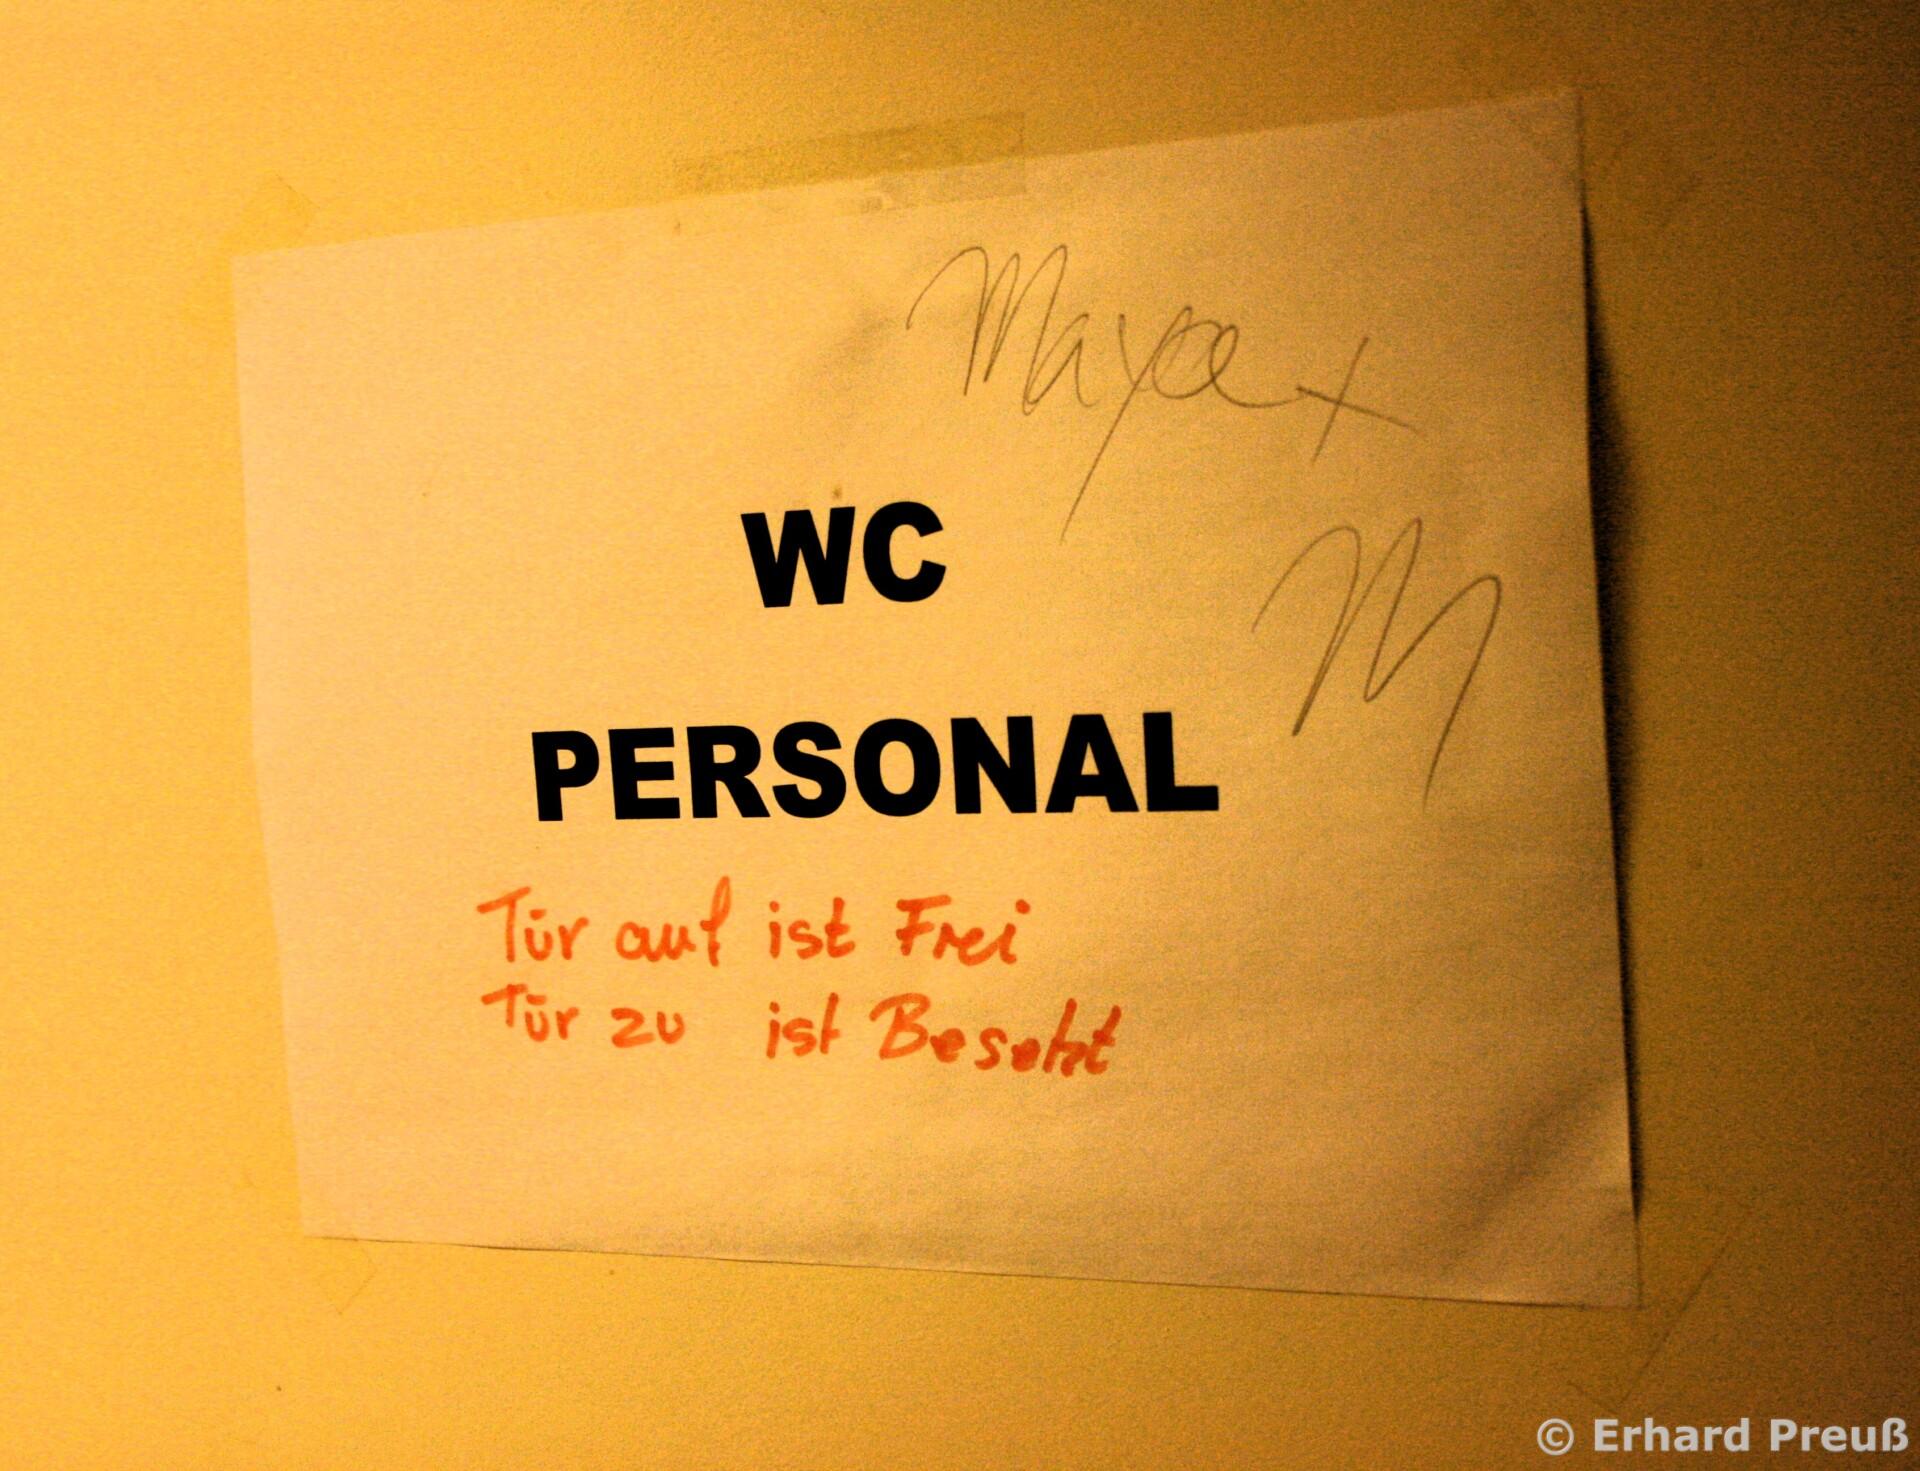 Maya +
WC
M
PERSONAL
Tür auf ist Frei
Tür zu ist Besetzt
© Erhard Preuß